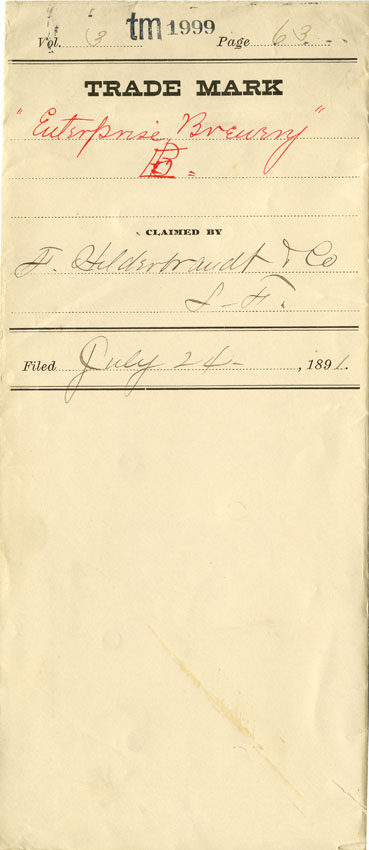 Vol. 3 tm 1999 Page 63
TRADE MARK
"Enterprise Brewery"
EB.
CLAIMED BY
F. Hilderbrandt & Co
S-F.
Filed July 24 , 1891.